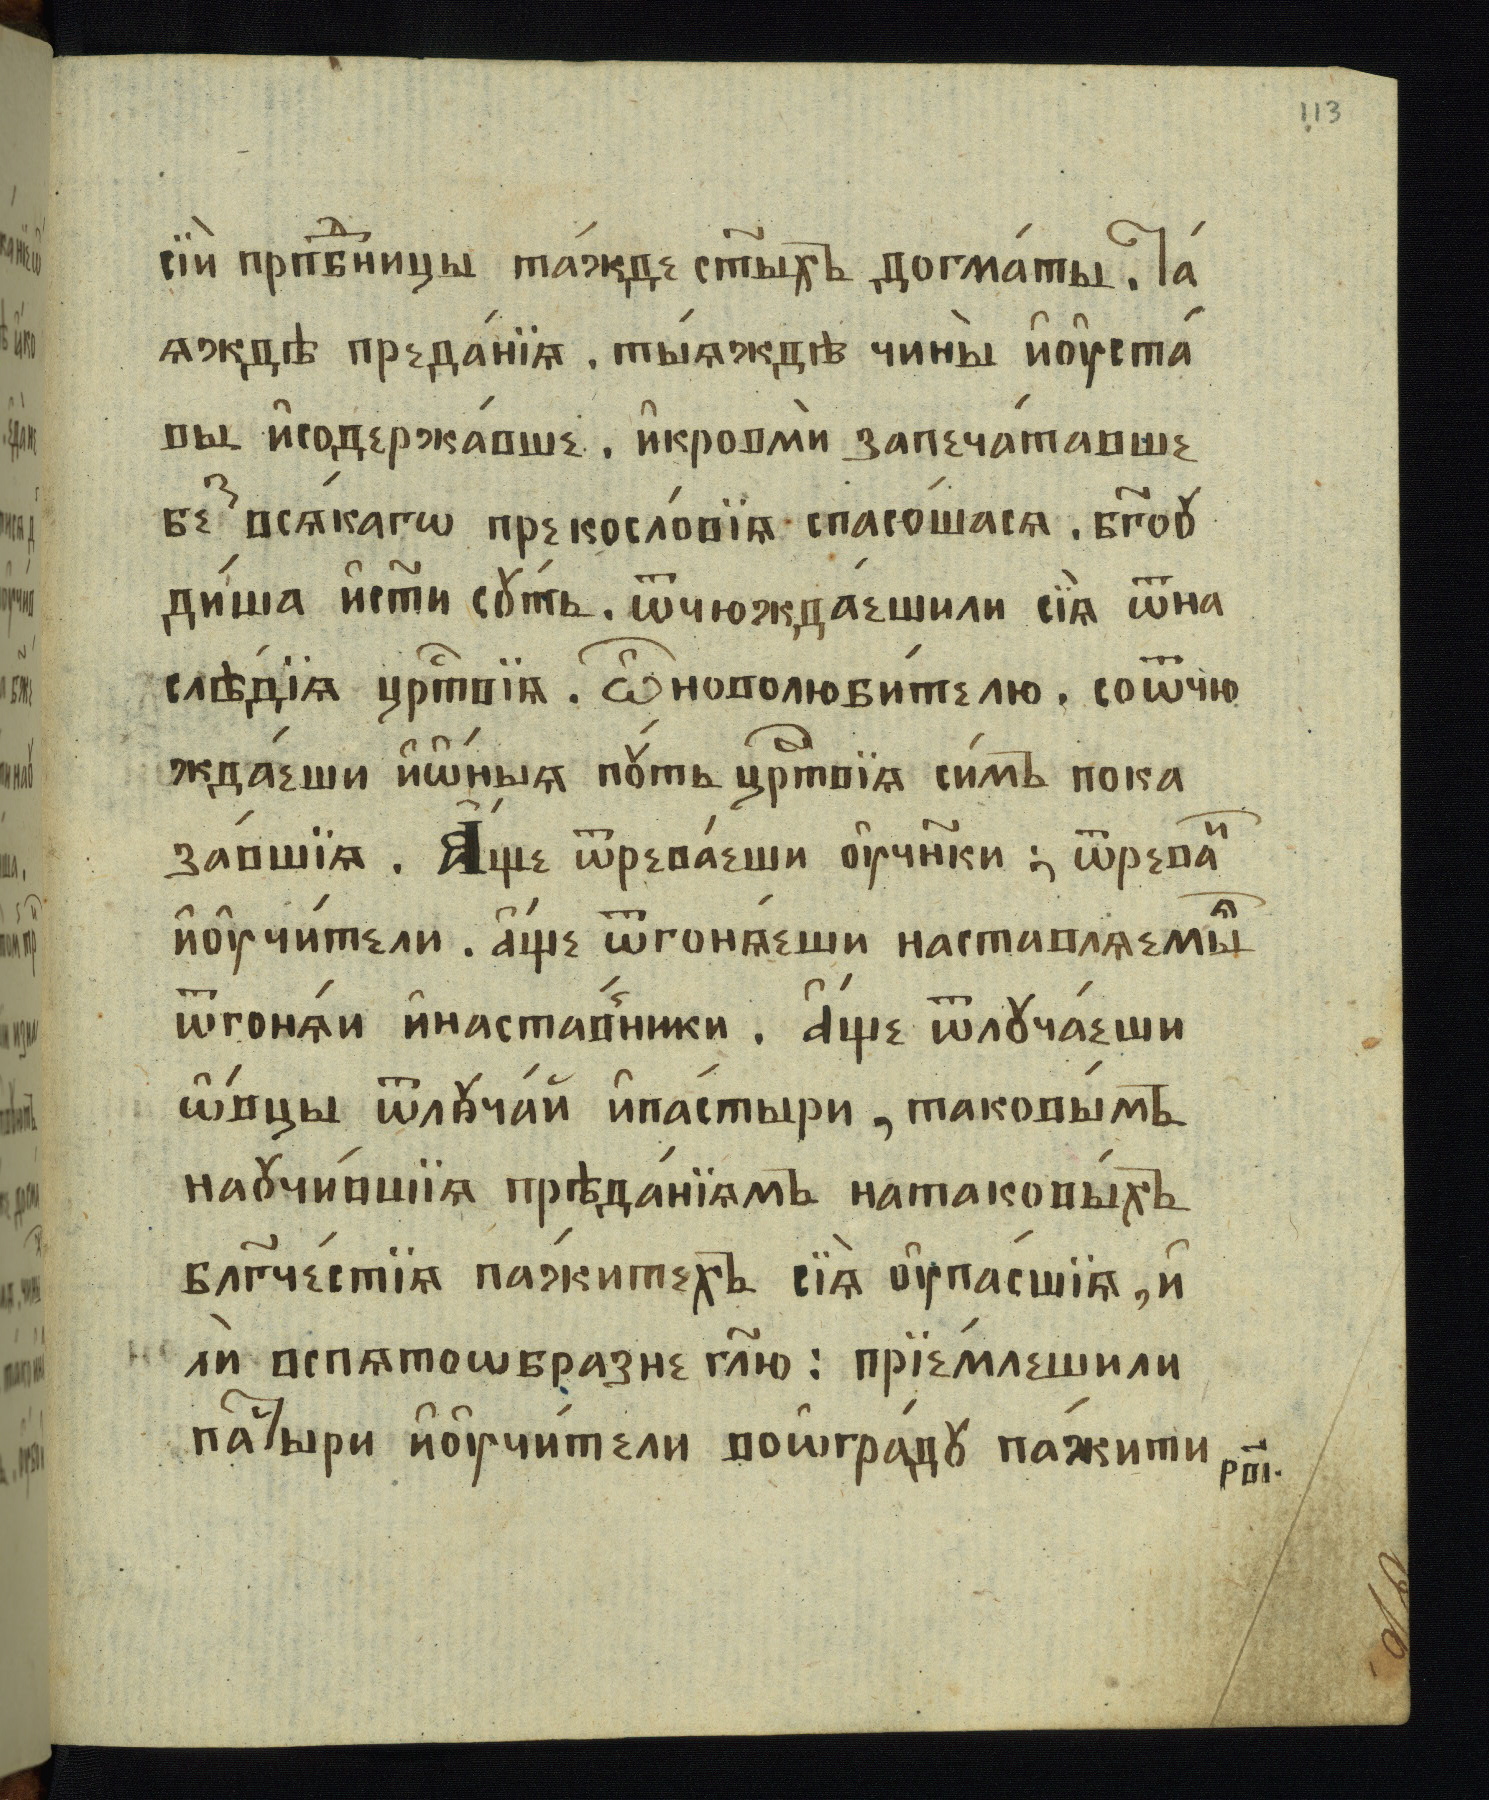 113
сїѝ прпⷣб҃ницы та́жде ст҃ыхъ догма́ты. Та́
ѧждѣ преда́нїѧ. ты́ѧждѣ чины̀ и҆ оу҆ста́
вы и҆содержа́вше. и҆кровмѝ запеча́тавше
беⷥ всѧ́кагѡ прекосло́вїѧ спасо́шасѧ. бг҃оꙋ
ди́ша и҆ст҃и сꙋ́ть. ѿчюжда́ешили сїѧ̀ ѿна
слѣ́дїѧ црⷭ҇твїѧ. Ѽ новолюби́телю. соѿчю
жда́еши и҆ѡ҆́ныѧ пꙋ́ть црⷭ҇твїѧ си́мъ пока
за́вшїѧ. А҆́ще ѿрева́еши оу҆чн҃ки: ѿрева́ⷩ
и҆оу҆чи́тели. а҆́ще ѿгонѧ́еши наставлѧемы̑ѧ
ѿгонѧ́и и҆наста́вⷩ҇ники. А҆́ще ѿлꙋча́еши
ѡ҆́вцы ѿлꙋча́й и҆па́стыри, таковы́мъ
наꙋчи́вшїѧ прѣда́нїѧмъ натаковы́хъ
блг҃че́стїѧ па́житехъ сїѧ̀ оу҆па́сшїѧ, и҆
лѝ вспѧтоѡбразне гл҃ю: прїе́млешили
паⷭ҇тыри и҆оу҆чи́тели воѡ҆гра́дꙋ па́жити
рві҃.